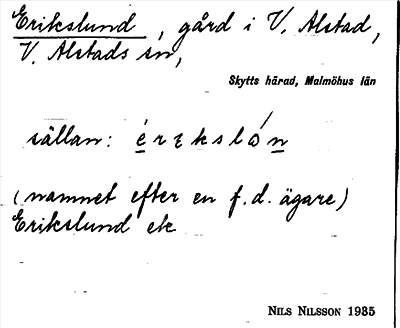 Erikslund, gård i V. Alstad,
V. Alstads sn,
Skytts härad, Malmöhus län
sällan: é r ɪ k s l ó n
(namnet efter en f.d. ägare)
Erikslund etc
NILS NILSSON 1935